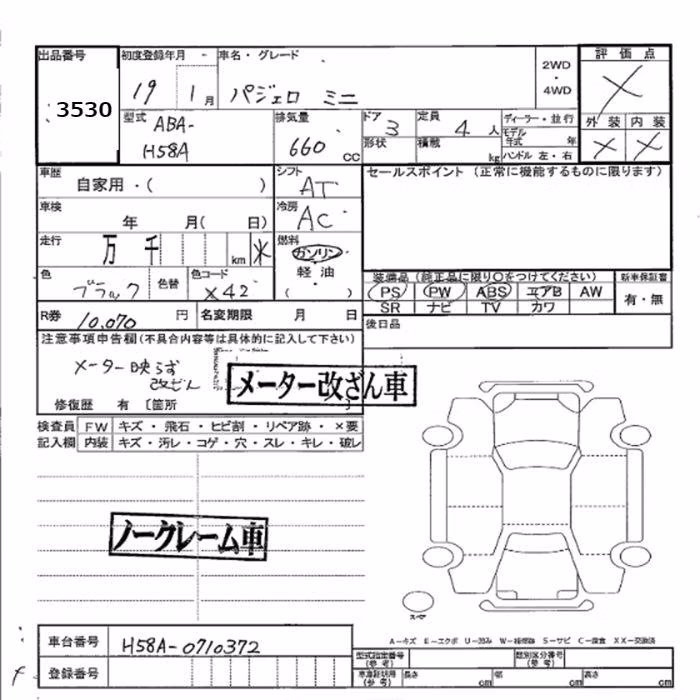 出品番号 初度登録年月 車名・グレード 2WD・4WD 評価点
3530 19 1月 パジェロ ミニ ×
型式 ABA-H58A 排気量 660cc ドア 3 定員 4人 ディーラー・並行 外装 内装
形状 積載 kg モデル年式 年 × ×
ハンドル 左・右
車歴 自家用・( ) シフト AT セールスポイント(正常に機能するものに限ります)
車検 年 月( 日) 冷房 AC
走行 万 千 km 燃料 ガソリン・軽油・( )
色 ブラック 色替 色コード X42 装備品(純正品に限り〇をつけてください) 新車保証書
PS PW ABS エアB AW 有・無
SR ナビ TV カワ
R券 10,070円 名変期限 月 日 後日品
注意事項申告欄(不具合内容等は具体的に記入して下さい)
メーター映らず
改ざん
メーター改ざん車
修復歴 有 〔箇所
検査員 FW キズ・飛石・ヒビ割・リペア跡・×要
記入欄 内装 キズ・汚レ・コゲ・穴・スレ・キレ・破レ
ノークレーム車
スペア
A-キズ E-エクボ U-凹み W-補修跡 S-サビ C-腐食 XX-交換済
車台番号 H58A-0710372
型式指定番号(参考) 類別区分番号(参考)
登録番号 車庫証明用(参考) 長さ cm 幅 cm 高さ cm